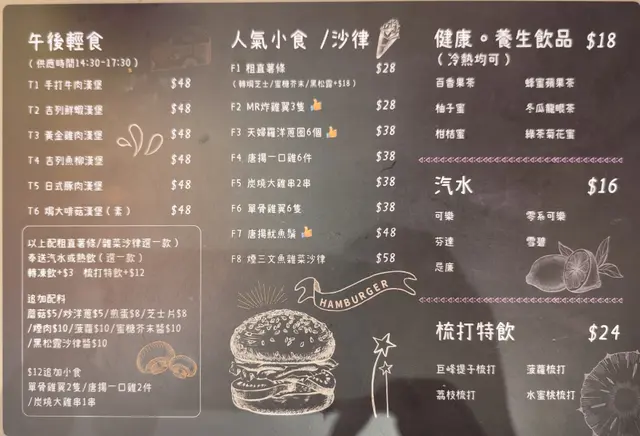 午後輕食
(供應時間14:30~17:30)
T1 手打牛肉漢堡 $48
T2 吉列鮮蝦漢堡 $48
T3 黃金雞肉漢堡 $48
T4 吉列魚柳漢堡 $48
T5 日式豚肉漢堡 $48
T6 焗大啡菇漢堡(素) $48
以上配粗直薯條/雜菜沙律(選一款)
奉送汽水或熱飲(選一款)
轉凍飲+$3 梳打特飲+$12
追加配料
蘑菇$5/炒洋蔥$5/煎蛋$8/芝士片$8
/煙肉$10/菠蘿$10/蜜糖芥末醬$10
/黑松露沙律醬$10
$12追加小食
單骨雞翼2隻/唐揚一口雞2件
/炭燒大雞串1串
人氣小食 /沙律
F1 粗直薯條 $28
(轉焗芝士/蜜糖芥末/黑松露+$18)
F2 MR炸雞翼3隻 $28
F3 天婦羅洋蔥圈6個 $38
F4 唐揚一口雞6件 $38
F5 炭燒大雞串2串 $38
F6 單骨雞翼6隻 $38
F7 唐揚魷魚鬚 $48
F8 煙三文魚雜菜沙律 $58
HAMBURGER
健康。養生飲品 $18
(冷熱均可)
百香果茶 蜂蜜蘋果茶
柚子蜜 冬瓜龍眼茶
柑桔蜜 綠茶菊花蜜
汽水 $16
可樂 零系可樂
芬達 雪碧
忌廉
梳打特飲 $24
巨峰提子梳打 菠蘿梳打
荔枝梳打 水蜜桃梳打